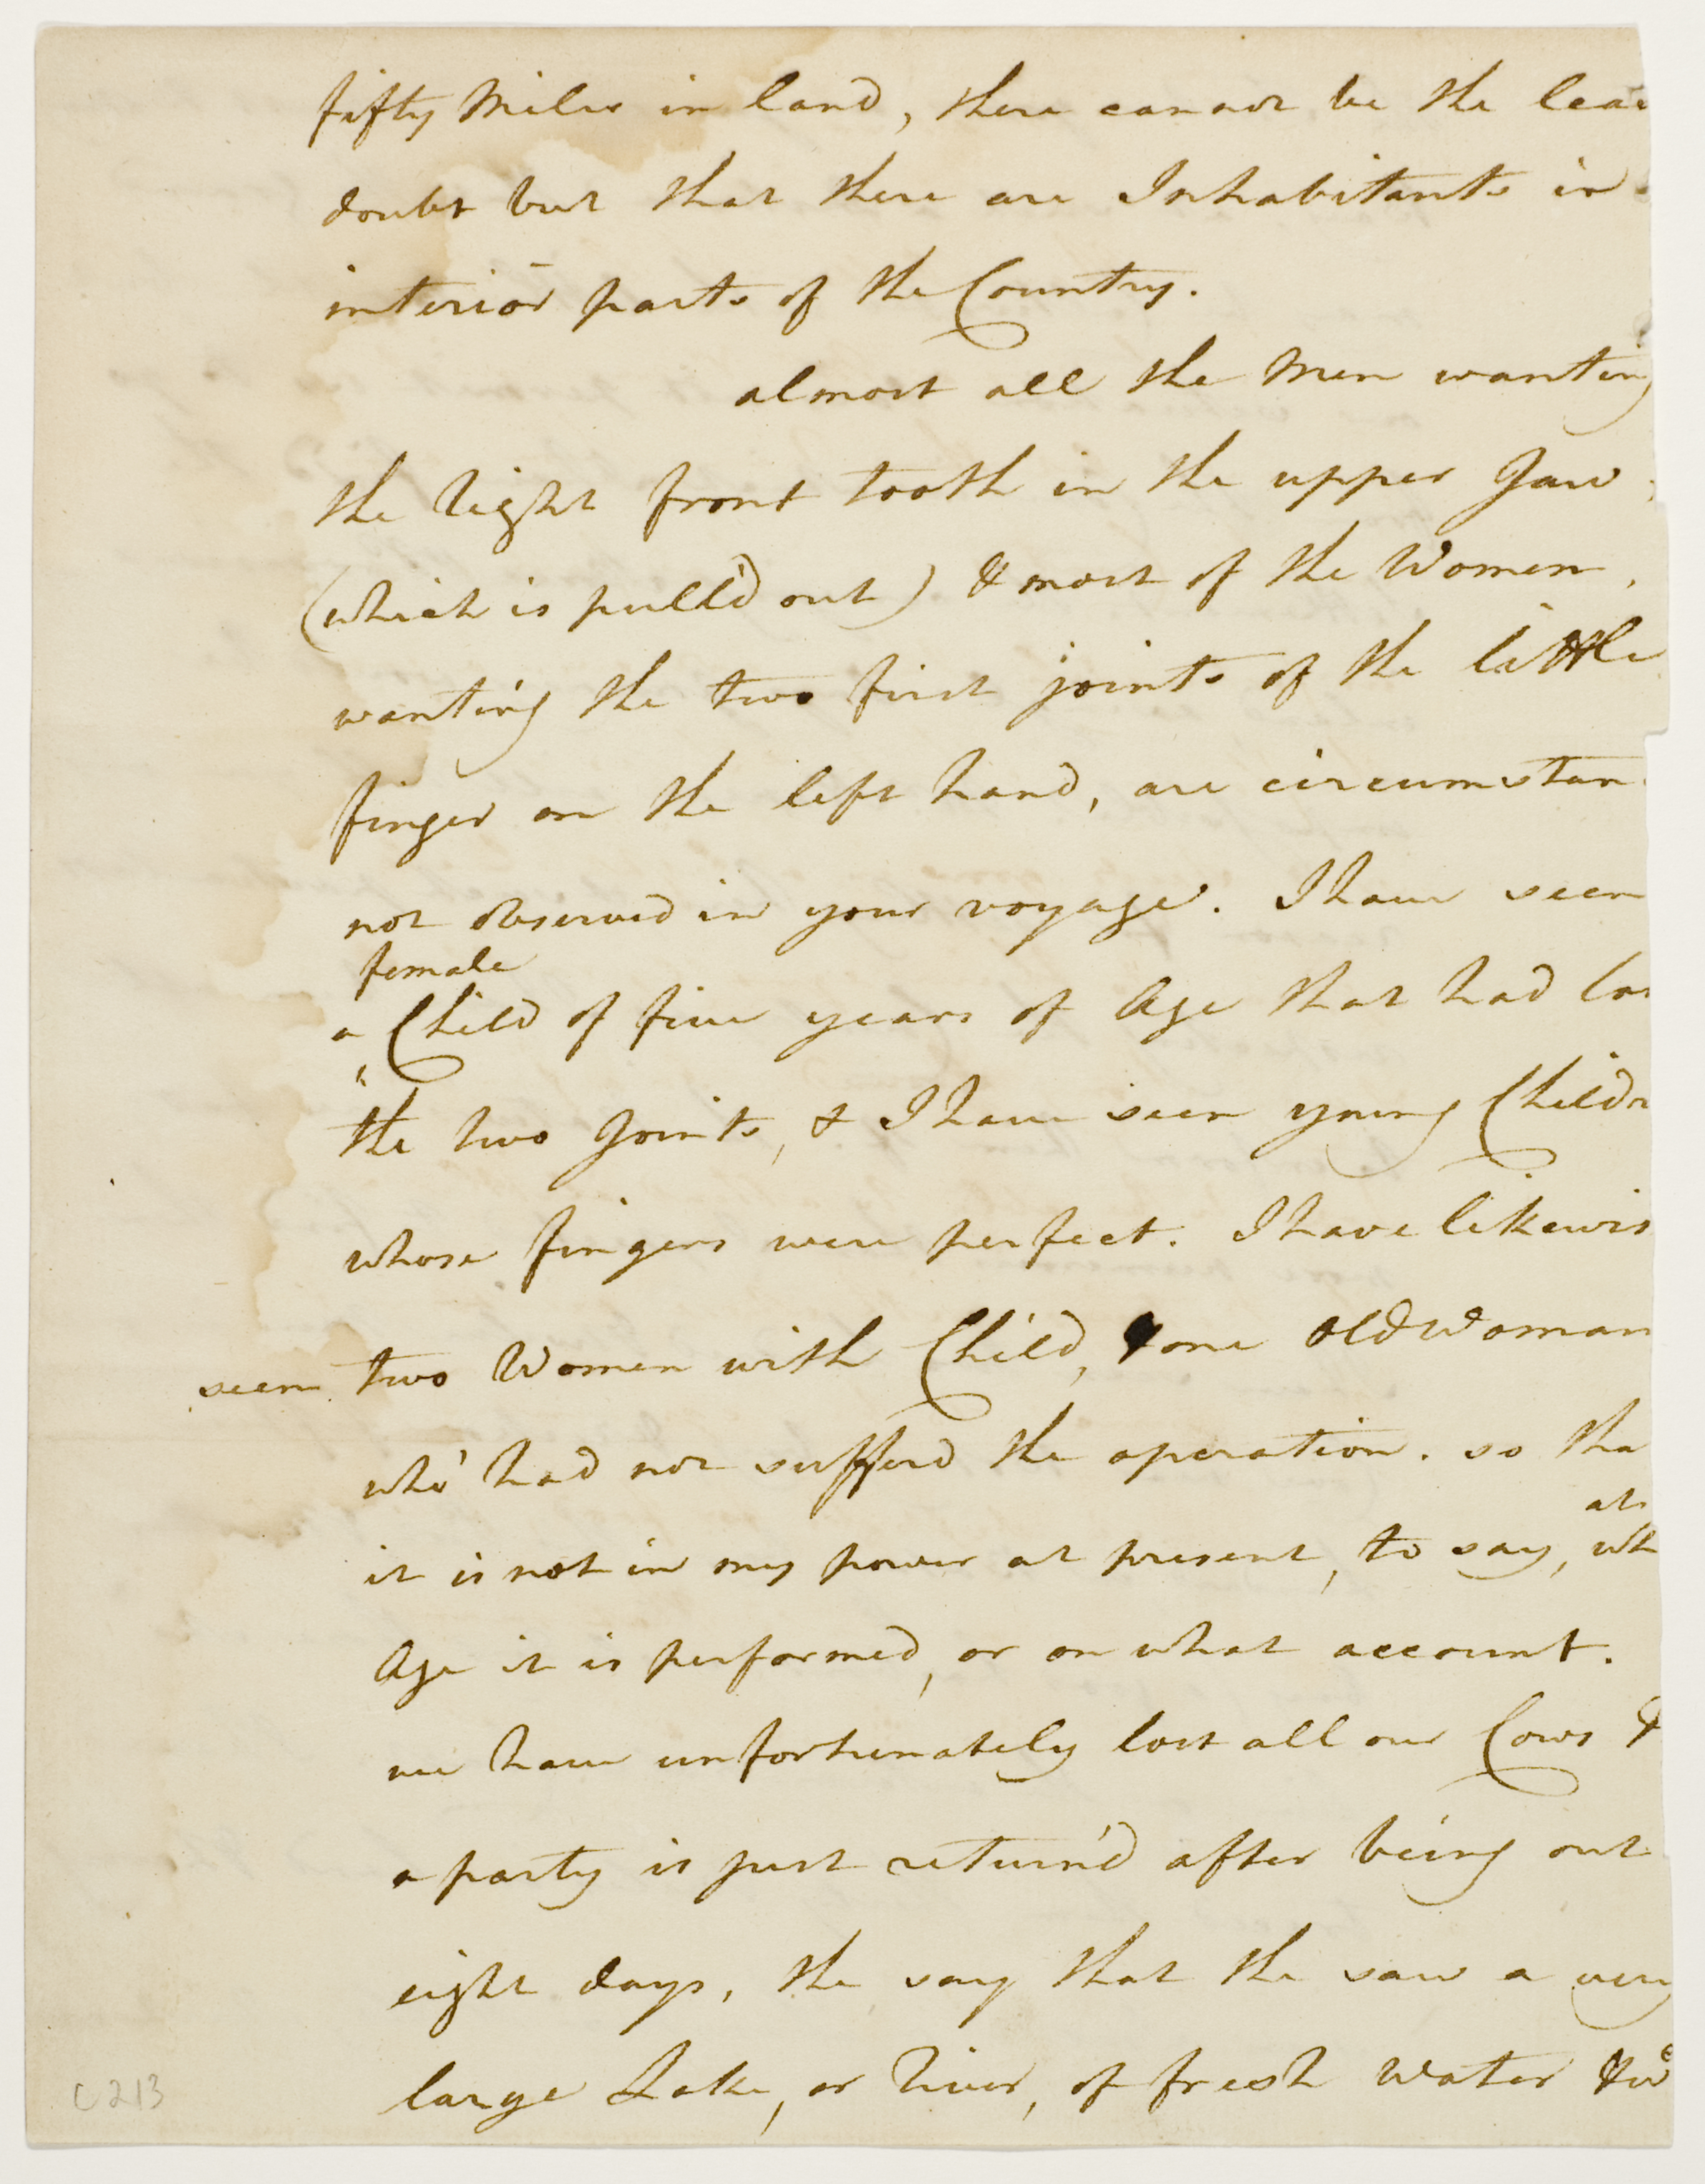 fifty Miles in land, there cannot be the leas
doubt but that there are Inhabitants in
interior parts of the Country.
almost all the Men wanting
the right front tooth in the upper Jaw
(which is pull'd out) & most of the Women,
wanting the two first joints of the little
finger on the left hand, are circumstan
not observed in your voyage. I have seen
female
a Child of five years of Age that had los
the two Joints, & I have seen young Childr
whose fingers were perfect. I have likewis
seen two Women with Child, & one Old Woman
who had not sufferd the operation. so tha
at
it is not in my power at present, to say, wh
Age it is performed, or on what account.
we have unfortunately lost all our Cows &
a party is just return'd after being out
eight days, the say that the saw a very
large Lake, or River, of fresh Water & we
C 213